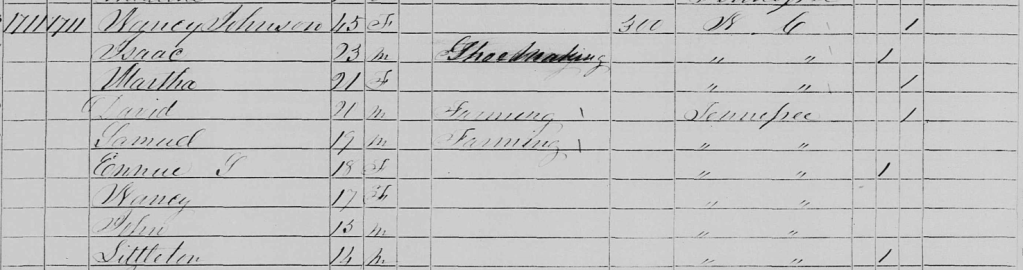 1711 1711 Nancy Johnson 45 F 310 N C 1
Isaac 23 m Shoemaking " " 1
Martha 21 F " " 1
David 21 m Farming Tennessee 1
Samuel 19 m Farming " "
18 F " " 1
Nancy 17 F " "
John 13 m " "
Littleton 14 m " " 1